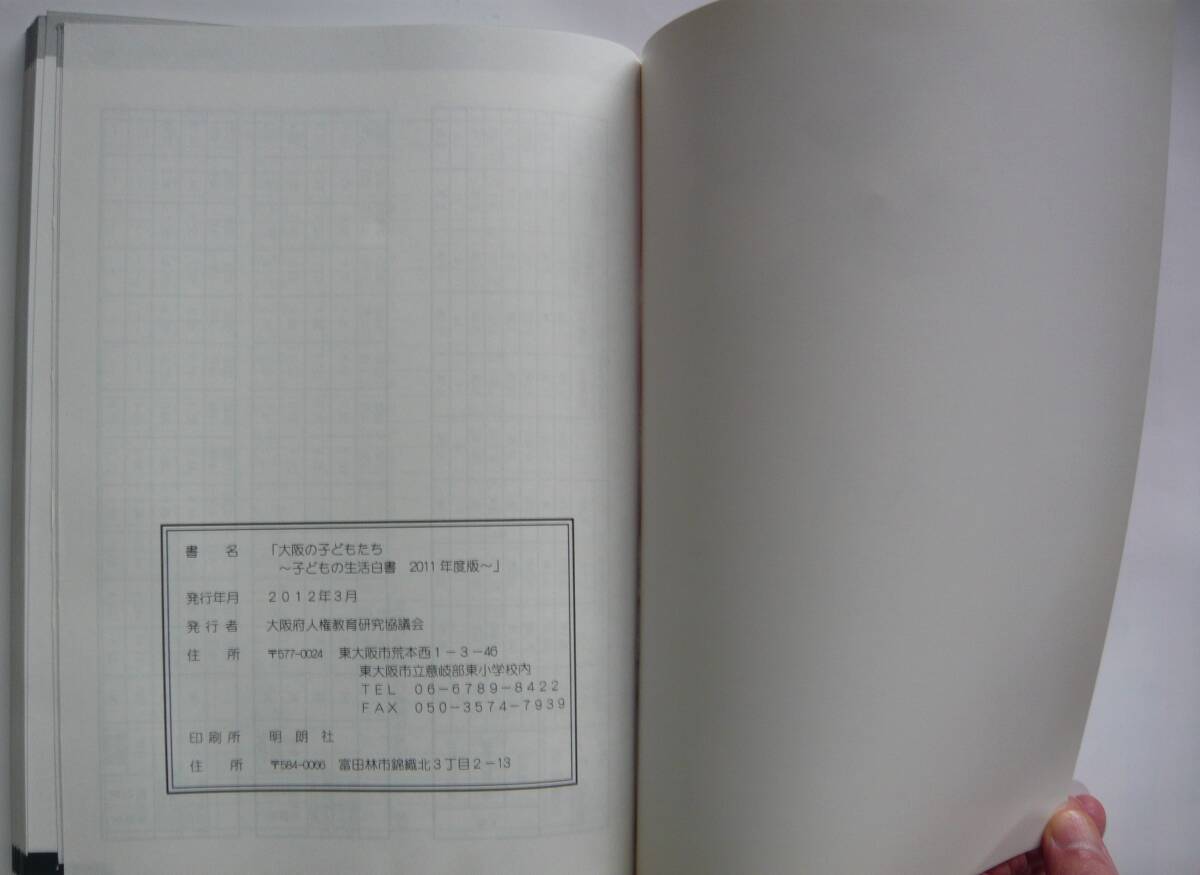 書　名　「大阪の子どもたち
～子どもの生活白書　2011年度版～」
発行年月　２０１２年３月
発 行 者　大阪府人権教育研究協議会
住　所　〒577-0024　東大阪市荒本西１－３－46
東大阪市立意岐部東小学校内
ＴＥＬ　０６－６７８９－８４２２
ＦＡＸ　０５０－３５７４－７９３９
印 刷 所　明 朗 社
住　所　〒584-0066　富田林市錦織北３丁目２－13